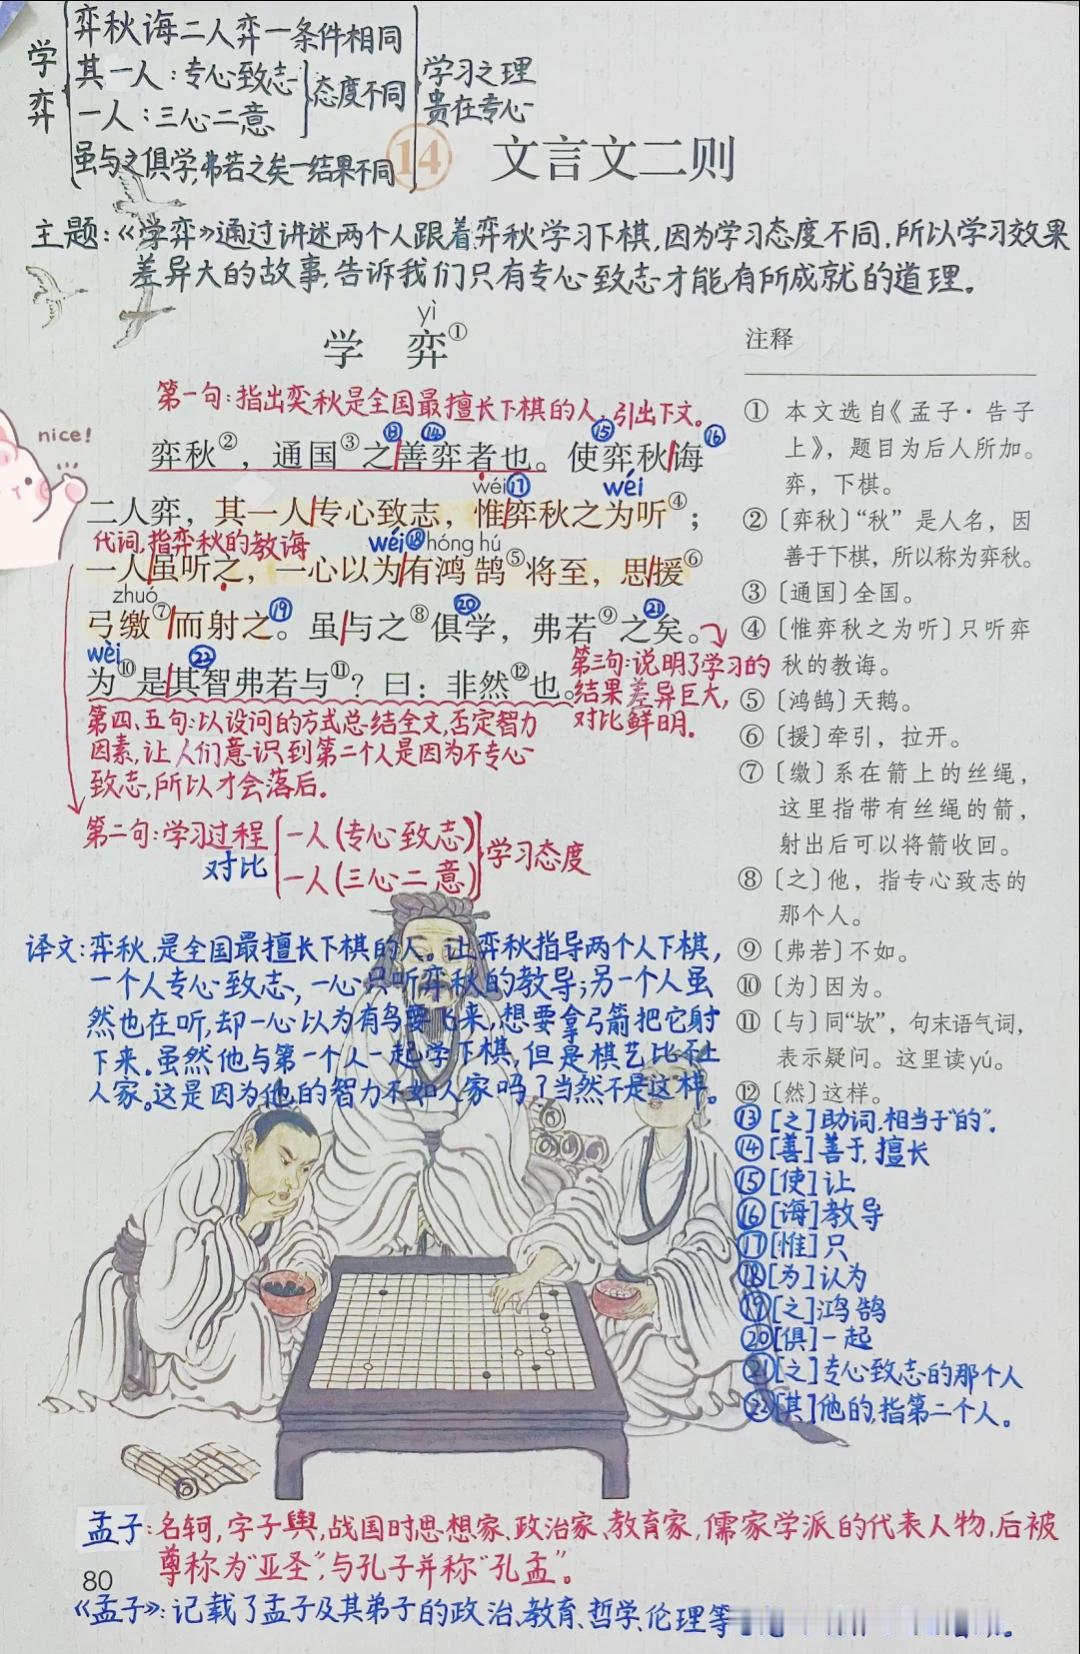 学弈
弈秋诲二人弈—条件相同
其一人：专心致志
一人：三心二意
态度不同
虽与之俱学，弗若之矣—结果不同
学习之理
贵在专心
14 文言文二则
主题：《学弈》通过讲述两个人跟着弈秋学习下棋，因为学习态度不同，所以学习效果
差异大的故事，告诉我们只有专心致志才能有所成就的道理。
yì
学 弈①
第一句：指出奕秋是全国最擅长下棋的人，引出下文。
nice!
⑬ ⑭ ⑮ ⑯
弈秋②，通国③之善弈者也。使弈秋诲
wéi ⑰ wéi
二人弈，其一人专心致志，惟弈秋之为听④；
代词，指弈秋的教诲
wéi ⑱ hóng hú
一人虽听之，一心以为有鸿鹄⑤将至，思援⑥
zhuó ⑲ ⑳ ㉑
弓缴⑦而射之。虽与之⑧俱学，弗若⑨之矣。
wèi ㉒
为⑩是其智弗若与⑪？曰：非然⑫也。
第三句：说明了学习的
结果差异巨大，
对比鲜明。
第四、五句：以设问的方式总结全文，否定智力
因素，让人们意识到第二个人是因为不专心
致志，所以才会落后。
第二句：学习过程
对比
一人（专心致志）
一人（三心二意）
学习态度
译文：弈秋，是全国最擅长下棋的人。让弈秋指导两个人下棋，
一个人专心致志，一心只听弈秋的教导；另一个人虽
然也在听，却一心以为有鸟要飞来，想要拿弓箭把它射
下来。虽然他与第一个人一起学下棋，但是棋艺比不上
人家。这是因为他的智力不如人家吗？当然不是这样。
注释
① 本文选自《孟子·告子
上》，题目为后人所加。
弈，下棋。
②〔弈秋〕“秋”是人名，因
善于下棋，所以称为弈秋。
③〔通国〕全国。
④〔惟弈秋之为听〕只听弈
秋的教诲。
⑤〔鸿鹄〕天鹅。
⑥〔援〕牵引，拉开。
⑦〔缴〕系在箭上的丝绳，
这里指带有丝绳的箭，
射出后可以将箭收回。
⑧〔之〕他，指专心致志的
那个人。
⑨〔弗若〕不如。
⑩〔为〕因为。
⑪〔与〕同“欤”，句末语气词，
表示疑问。这里读yú。
⑫〔然〕这样。
⑬[之]助词，相当于“的”。
⑭[善]善于，擅长
⑮[使]让
⑯[诲]教导
⑰[惟]只
⑱[为]认为
⑲[之]鸿鹄
⑳[俱]一起
㉑[之]专心致志的那个人
㉒[其]他的，指第二个人。
孟子：名轲，字子舆，战国时思想家、政治家、教育家，儒家学派的代表人物，后被
尊称为“亚圣”，与孔子并称“孔孟”。
80
《孟子》：记载了孟子及其弟子的政治、教育、哲学、伦理等